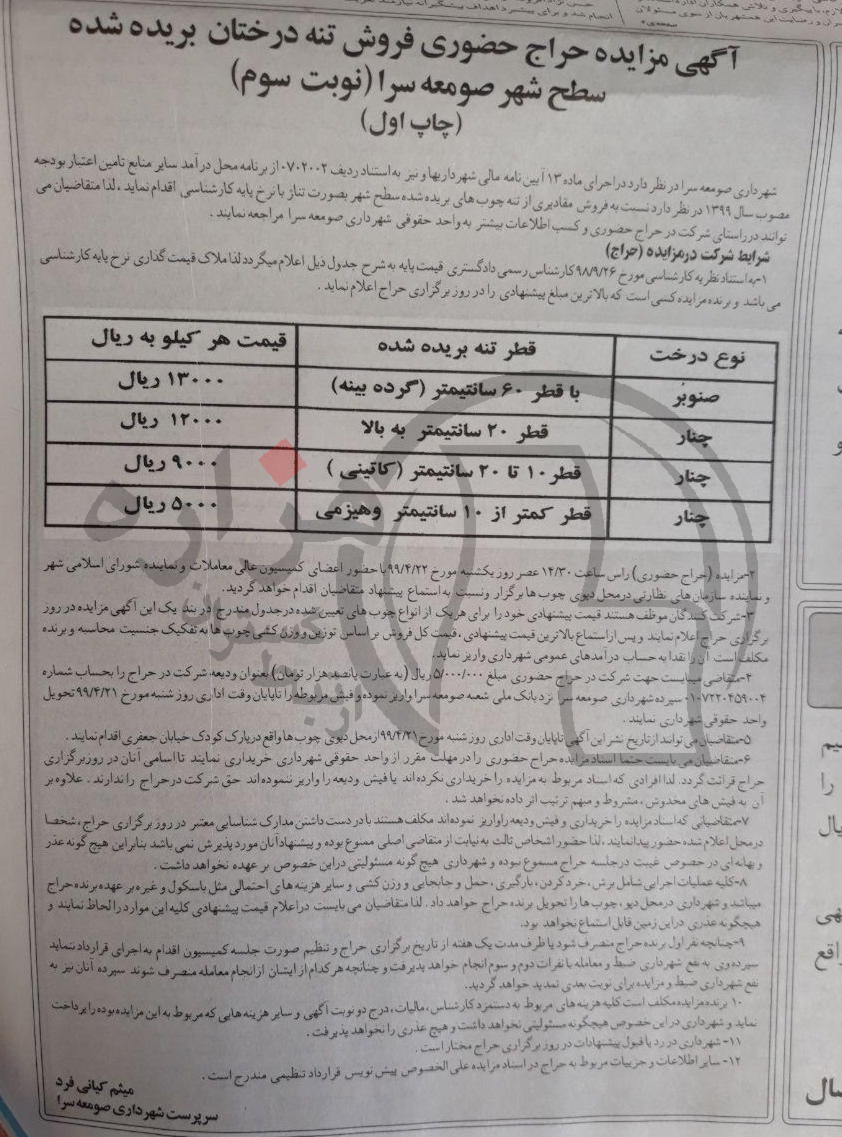 آگهی مزایده حراج حضوری فروش تنه درختان بریده شده
سطح شهر صومعه سرا (نوبت سوم)
(چاپ اول)
شهرداری صومعه سرا در نظر دارد در اجرای ماده ۱۳ آیین نامه مالی شهرداریها و نیز به استناد ردیف ۰۷۰۲۰۰۲ از برنامه محل درآمد سایر منابع تامین اعتبار بودجه
مصوب سال ۱۳۹۹ در نظر دارد نسبت به فروش مقادیری از تنه چوب های بریده شده سطح شهر بصورت تناژ با نرخ پایه کارشناسی اقدام نماید ، لذا متقاضیان می
توانند در راستای شرکت در حراج حضوری و کسب اطلاعات بیشتر به واحد حقوقی شهرداری صومعه سرا مراجعه نمایند .
شرایط شرکت در مزایده (حراج)
۱-به استناد نظریه کارشناسی مورخ ۹۸/۹/۲۶ کارشناس رسمی دادگستری قیمت پایه به شرح جدول ذیل اعلام میگردد لذا ملاک قیمت گذاری نرخ پایه کارشناسی
می باشد و برنده مزایده کسی است که بالاترین مبلغ پیشنهادی را در روز برگزاری حراج اعلام نماید .
نوع درخت قطر تنه بریده شده قیمت هر کیلو به ریال
صنوبر با قطر ۶۰ سانتیمتر (گرده بینه) ۱۳۰۰۰ ریال
چنار قطر ۲۰ سانتیمتر به بالا ۱۲۰۰۰ ریال
چنار قطر ۱۰ تا ۲۰ سانتیمتر (کاتینی ) ۹۰۰۰ ریال
چنار قطر کمتر از ۱۰ سانتیمتر وهیزمی ۵۰۰۰ ریال
۲-مزایده (حراج حضوری) راس ساعت ۱۴/۳۰ عصر روز یکشنبه مورخ ۹۹/۴/۲۲ با حضور اعضای کمیسیون عالی معاملات و نماینده شورای اسلامی شهر
و نماینده سازمان های نظارتی در محل دپوی چوب ها برگزار و نسبت به استماع پیشنهاد متقاضیان اقدام خواهد گردید.
۳-شرکت کنندگان موظف هستند قیمت پیشنهادی خود را برای هر یک از انواع چوب های تعیین شده در جدول مندرج در بند یک این آگهی مزایده در روز
برگزاری حراج اعلام نمایند و پس از استماع بالاترین قیمت پیشنهادی ، قیمت کل فروش بر اساس توزین و وزن کشی چوب ها به تفکیک جنسیت محاسبه و برنده
مکلف است آن را نقدا به حساب درآمدهای عمومی شهرداری واریز نماید.
۴-متقاضی میبایست جهت شرکت در حراج حضوری مبلغ ۵/۰۰۰/۰۰۰ ریال (به عبارت پانصد هزار تومان) بعنوان ودیعه شرکت در حراج را بحساب شماره
۰۱۰۷۲۲۰۴۵۹۰۰۴ سپرده شهرداری صومعه سرا نزد بانک ملی شعبه صومعه سرا واریز نموده و فیش مربوطه را تا پایان وقت اداری روز شنبه مورخ ۹۹/۴/۲۱ تحویل
واحد حقوقی شهرداری نمایند .
۵-متقاضیان می توانند از تاریخ نشر این آگهی تا پایان وقت اداری روز شنبه مورخ ۹۹/۴/۲۱ از محل دپوی چوب ها واقع در پارک کودک خیابان جعفری اقدام نمایند .
۶-متقاضیان می بایست حتما اسناد مزایده حراج حضوری را در مهلت مقرر از واحد حقوقی شهرداری خریداری نمایند تا اسامی آنان در روز برگزاری
حراج قرائت گردد. لذا افرادی که اسناد مربوط به مزایده را خریداری نکرده اند یا فیش ودیعه را واریز ننموده اند حق شرکت در حراج را ندارند . علاوه بر
آن به فیش های مخدوش ، مشروط و مبهم ترتیب اثر داده نخواهد شد .
۷-متقاضیانی که اسناد مزایده را خریداری و فیش ودیعه را واریز نموده اند مکلف هستند با در دست داشتن مدارک شناسایی معتبر در روز برگزاری حراج ، شخصا
در محل اعلام شده حضور پیدا نمایند . لذا حضور اشخاص ثالث به نیابت از متقاضی اصلی ممنوع بوده و پیشنهاد آنان مورد پذیرش نمی باشد بنابراین هیچ گونه عذر
و بهانه ای در خصوص غیبت در جلسه حراج مسموع نبوده و شهرداری هیچ گونه مسئولیتی در این خصوص بر عهده نخواهد داشت .
۸-کلیه عملیات اجرایی شامل برش ، خرد کردن ، بارگیری ، حمل و جابجایی و وزن کشی و سایر هزینه های احتمالی مثل باسکول و غیره بر عهده برنده حراج
میباشد و شهرداری در محل دپو ، چوب ها را تحویل برنده حراج خواهد داد . لذا متقاضیان می بایست در اعلام قیمت پیشنهادی کلیه این موارد را لحاظ نمایند و
هیچگونه عذری در این زمین قابل استماع نخواهد بود.
۹-چنانچه نفر اول برنده حراج منصرف شود یا ظرف مدت یک هفته از تاریخ برگزاری حراج و تنظیم صورت جلسه کمیسیون اقدام به اجرای قرارداد ننماید
سپرده وی به نفع شهرداری ضبط و معامله با نفرات دوم و سوم انجام خواهد پذیرفت و چنانچه هر کدام از ایشان از انجام معامله منصرف شوند سپرده آنان نیز به
نفع شهرداری ضبط و مزایده برای نوبت بعدی تمدید خواهد گردید.
۱۰ برنده مزایده مکلف است کلیه هزینه های مربوط به دستمزد کارشناس ، مالیات ، درج دو نوبت آگهی و سایر هزینه هایی که مربوط به این مزایده بوده را پرداخت
نماید و شهرداری در این خصوص هیچگونه مسئولیتی نخواهد داشت و هیچ عذری را نخواهد پذیرفت .
۱۱- شهرداری در رد یا قبول پیشنهادات در روز برگزاری حراج مختار است .
۱۲- سایر اطلاعات و جزییات مربوط به حراج در اسناد مزایده علی الخصوص پیش نویس قرارداد تنظیمی مندرج است .
میثم کیانی فرد
سرپرست شهرداری صومعه سرا
هزاره